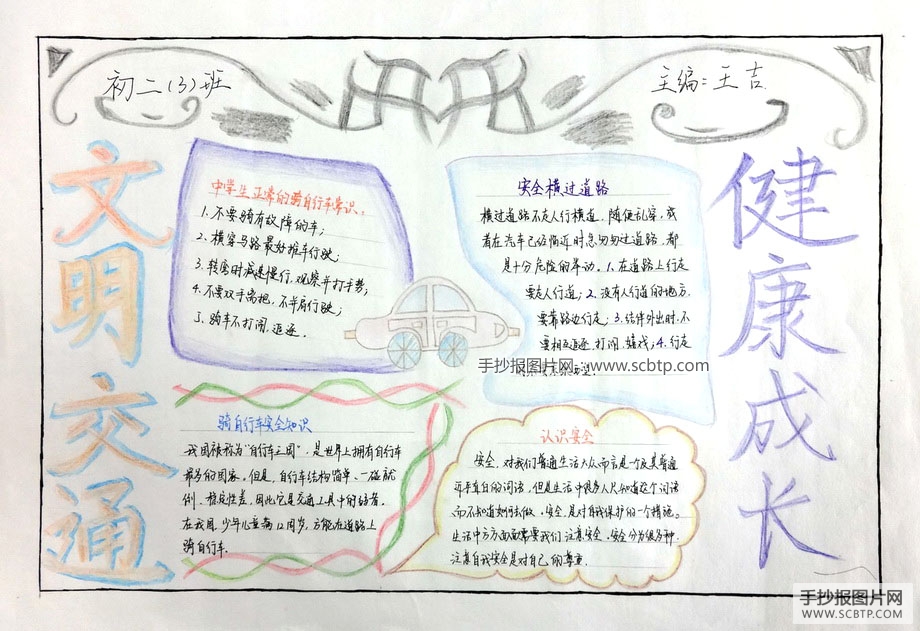 初二(3)班
主编:王吉
文明交通
中学生正常的骑自行车常识:
1.不要骑有故障的车;
2.横穿马路最好推车行驶;
3.转弯时减速慢行,观察并打手势;
4.不要双手离把,不并肩行驶;
5.骑车不打闹,追逐.
安全横过道路
横过道路不走人行横道,随便乱穿,或
者在汽车已经临近时急匆匆过道路,都
是十分危险的举动。1.在道路上行走
要走人行道;2.没有人行道的地方,
要靠路边行走;3.结伴外出时,不
要相互追逐、打闹、嬉戏;4.行走
手抄报图片网 www.scbtp.com
健康成长
骑自行车安全知识
我国被称为“自行车王国”,是世界上拥有自行车
最多的国家。但是,自行车结构简单、一碰就
倒、稳定性差,因此它是交通工具中的弱者。
在我国,少年儿童满12周岁,方能在道路上
骑自行车.
认识安全
安全,对我们普通生活大众而言是个极其普通
近乎直白的词语,但是生活中很多人只知道这个词语
而不知道如何去做,安全,是对自我保护的一个措施。
生活中方方面面需要我们注意安全,安全分为很多种.
注意自我安全是对自己的尊重.
手抄报图片网
WWW.SCBTP.COM